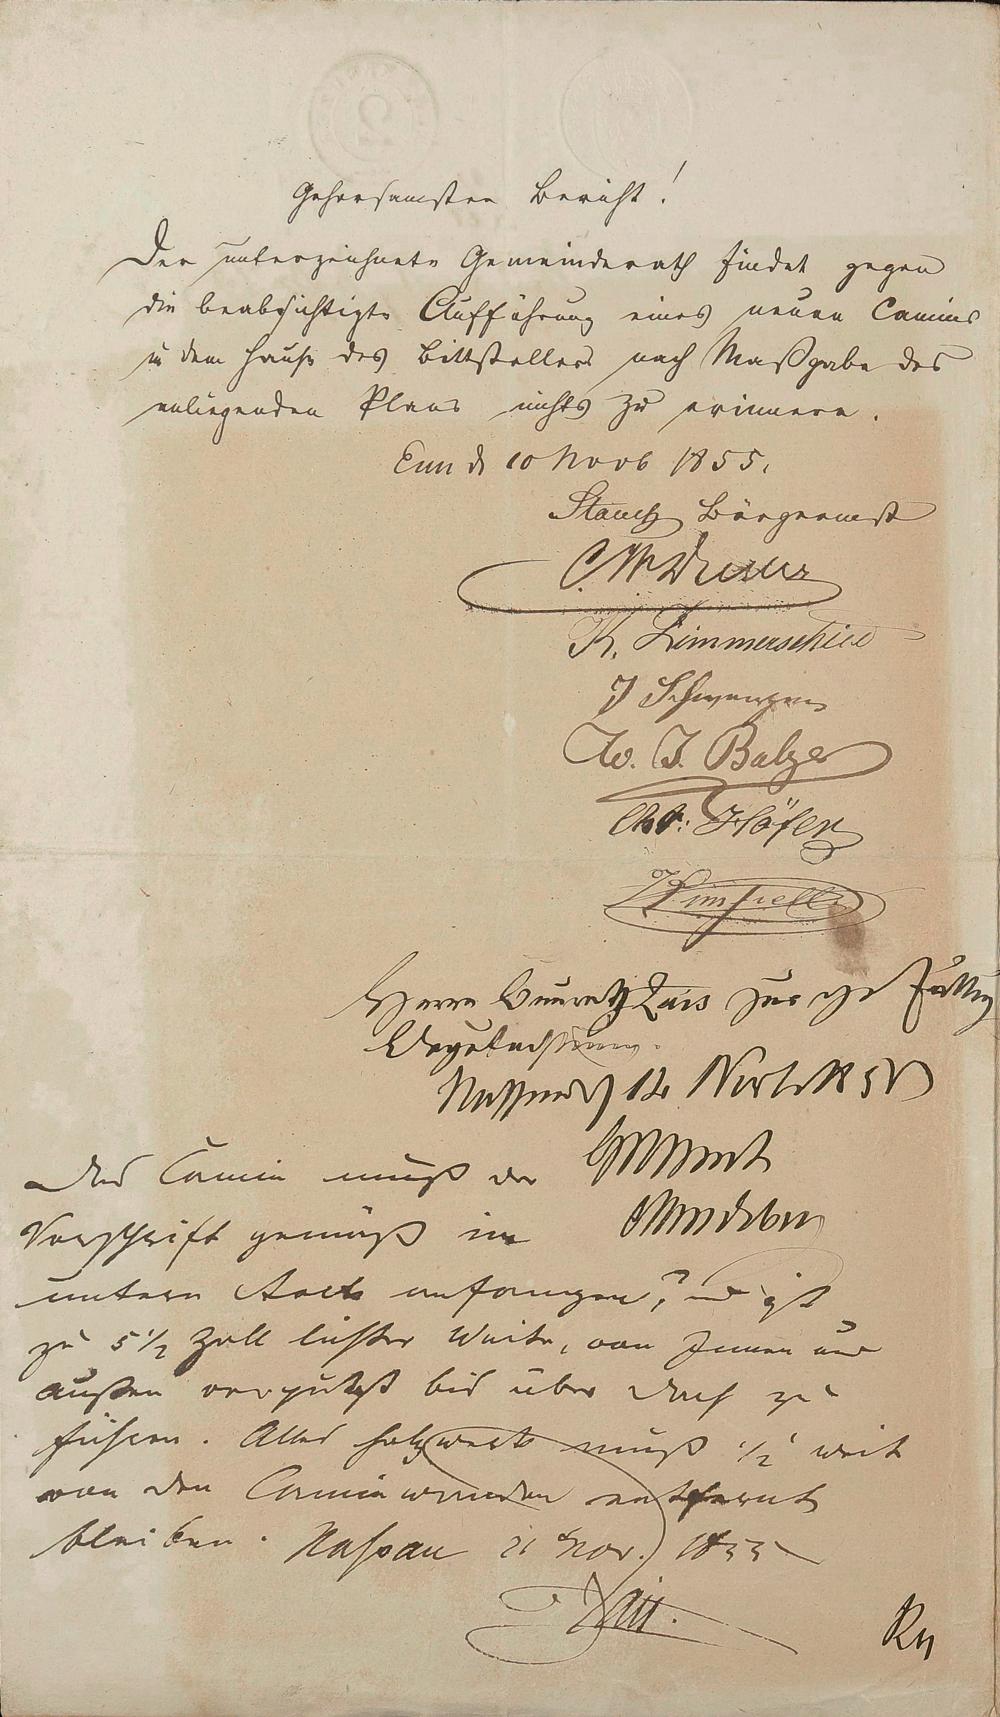 2
Gehorsamster Bericht!
Der unterzeichnete Gemeinderath findet gegen
die beabsichtigte Aufführung eines neuen Camins
in dem Hause des Bittstellers nach Maßgabe des
anliegenden Plans nichts zu erinnern.
Ems d 10 Novb 1855.
Stauch Bürgermst
C. W.
K. Zimmerschied
J
W. J. Balzer
Höfer
Herrn Baurath Zais zur
Begutachtung.
Nassau 14 Novb 1855
Das Camin muß der
Vorschrift gemäß im
untern Stock anfangen, und ist
zu 5 1/2 Zoll lichter Weite, von Innen und
außen verputzt bis über Dach zu
führen. Alles Holzwerk muß 1/2' weit
von den Caminwänden entfernt
bleiben. Nassau 21 Nov. 1855
Zais.